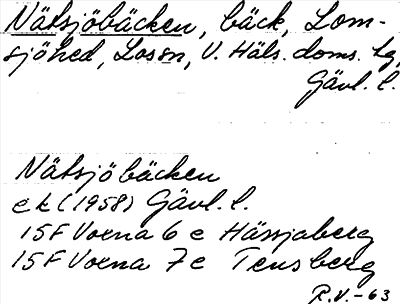 Nätsjöbäcken, bäck, Lom-
sjöhed, Loson, V. Häls. doms. tg,
Gävl. l.
Nätsjöbäcken
ek (1958) Gävl. l.
15F Voxna 6 e Hässjaberg
15F Voxna 7 e Tensberg
R.V. -63